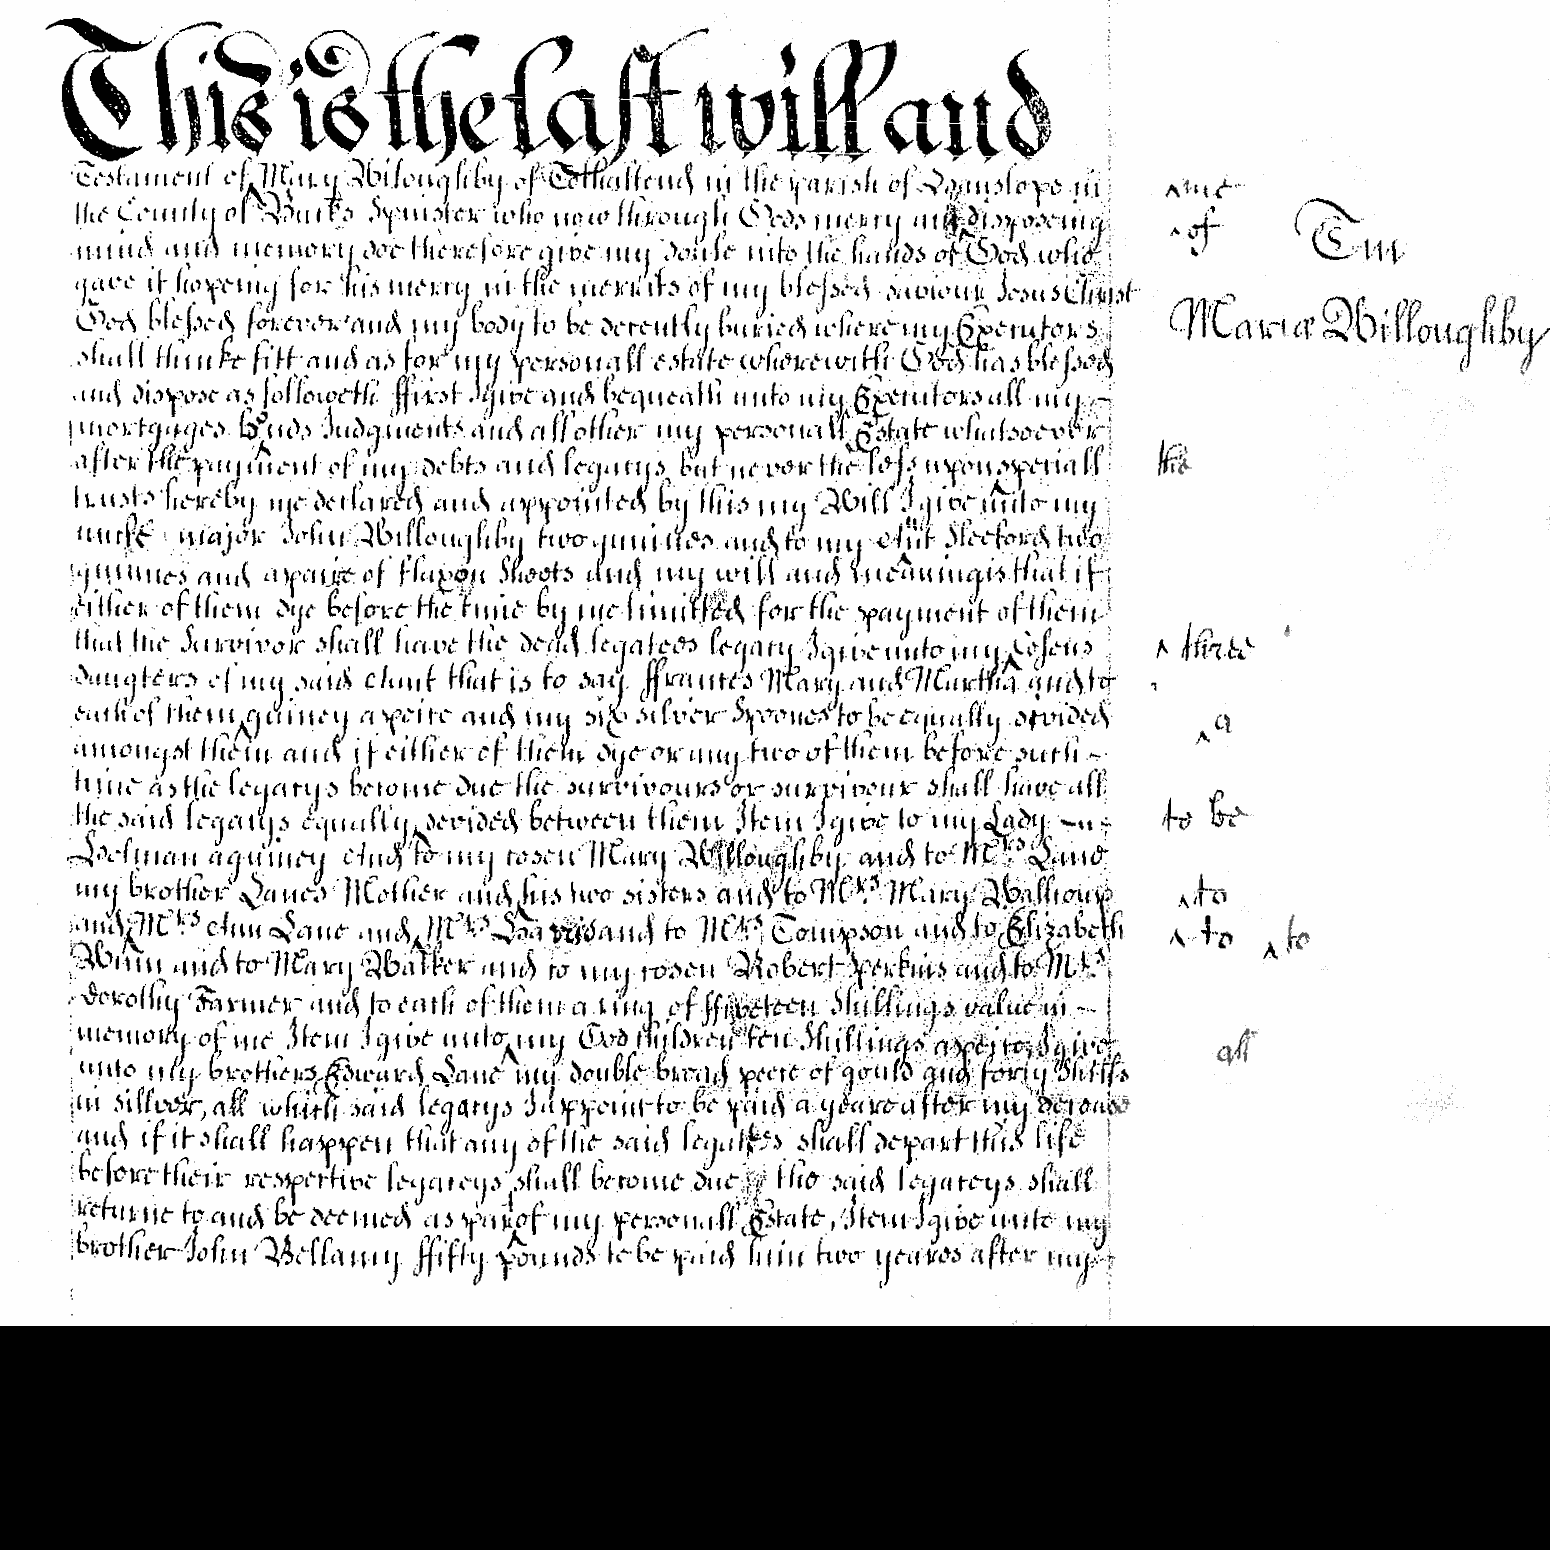 This is the last will and
Testament of Mary Wiloughby of Tothallend in the parish of Hanslope in
the County of Bucks Spinster who now through Gods mercy and disposeing
mind and memory doe therefore give my soule into the hands of God who
gave it hopeing for his mercy in the merrits of my blessed saviour Jesus Christ
God blessed forever and my body to be decently buried where my Executors
shall thinke fitt and as for my personall estate wherewith God has blessed
and dispose as followeth ffirst I give and bequeath unto my Executors all my
mortgages bonds Judgments and all other my personall Estate whatsoever
after the payment of my debts and legacys but never the less upon speciall
trusts hereby me declared and appointed by this my Will I give unto my
uncle major John Willoughby two guinnes and to my Aunt Sleeford two
guinnes and a paire of flaxon Sheets and my will and meaning is that if
either of them dye before the time by me limitted for the payment of them
that the Survivor shall have the dead legatees legacy I give unto my Cosens
daugters of my said Aunt that is to say ffrances Mary and Martha and to
each of them guiney a peice and my six silver Spoones to be equally devided
amongst them and if either of them dye or any two of them before such
time as the legacys become due the survivours or survivour shall have all
the said legacys equally devided between them Item I give to my Lady
aguiney And to my cosen Mary Willoughby and to Mrs Lane
my brother Lanes Mother and his two sisters and to Mrs Mary
and Mrs Ann Lane and Mrs and to Mrs Tompson and to Elizabeth
and to Mary Walker and to my cosen Robert Perkins and to Mrs
Dorothy Farmer and to each of them a ring of ffiveteen Shillings value in
memory of me Item I give unto my God children ten Shillings a peice I give
unto my brothers Edward Lane my double broad peece of gould and forty Shills
in sillver, all which said legacys I appoint to be paid a yeare after my decease
and if it shall happen that any of the said legatees shall depart this life
before their respective legaceys shall become due the said legaceys shall
returne to and be deemed as par of my personall Estate, Item I give unto my
brother John Bellamy ffifty pounds to be paid him two yeares after my
^me
^of
Tm
Mariæ Willoughby
the
^ three
^a
to be
^to
^ to ^to
all